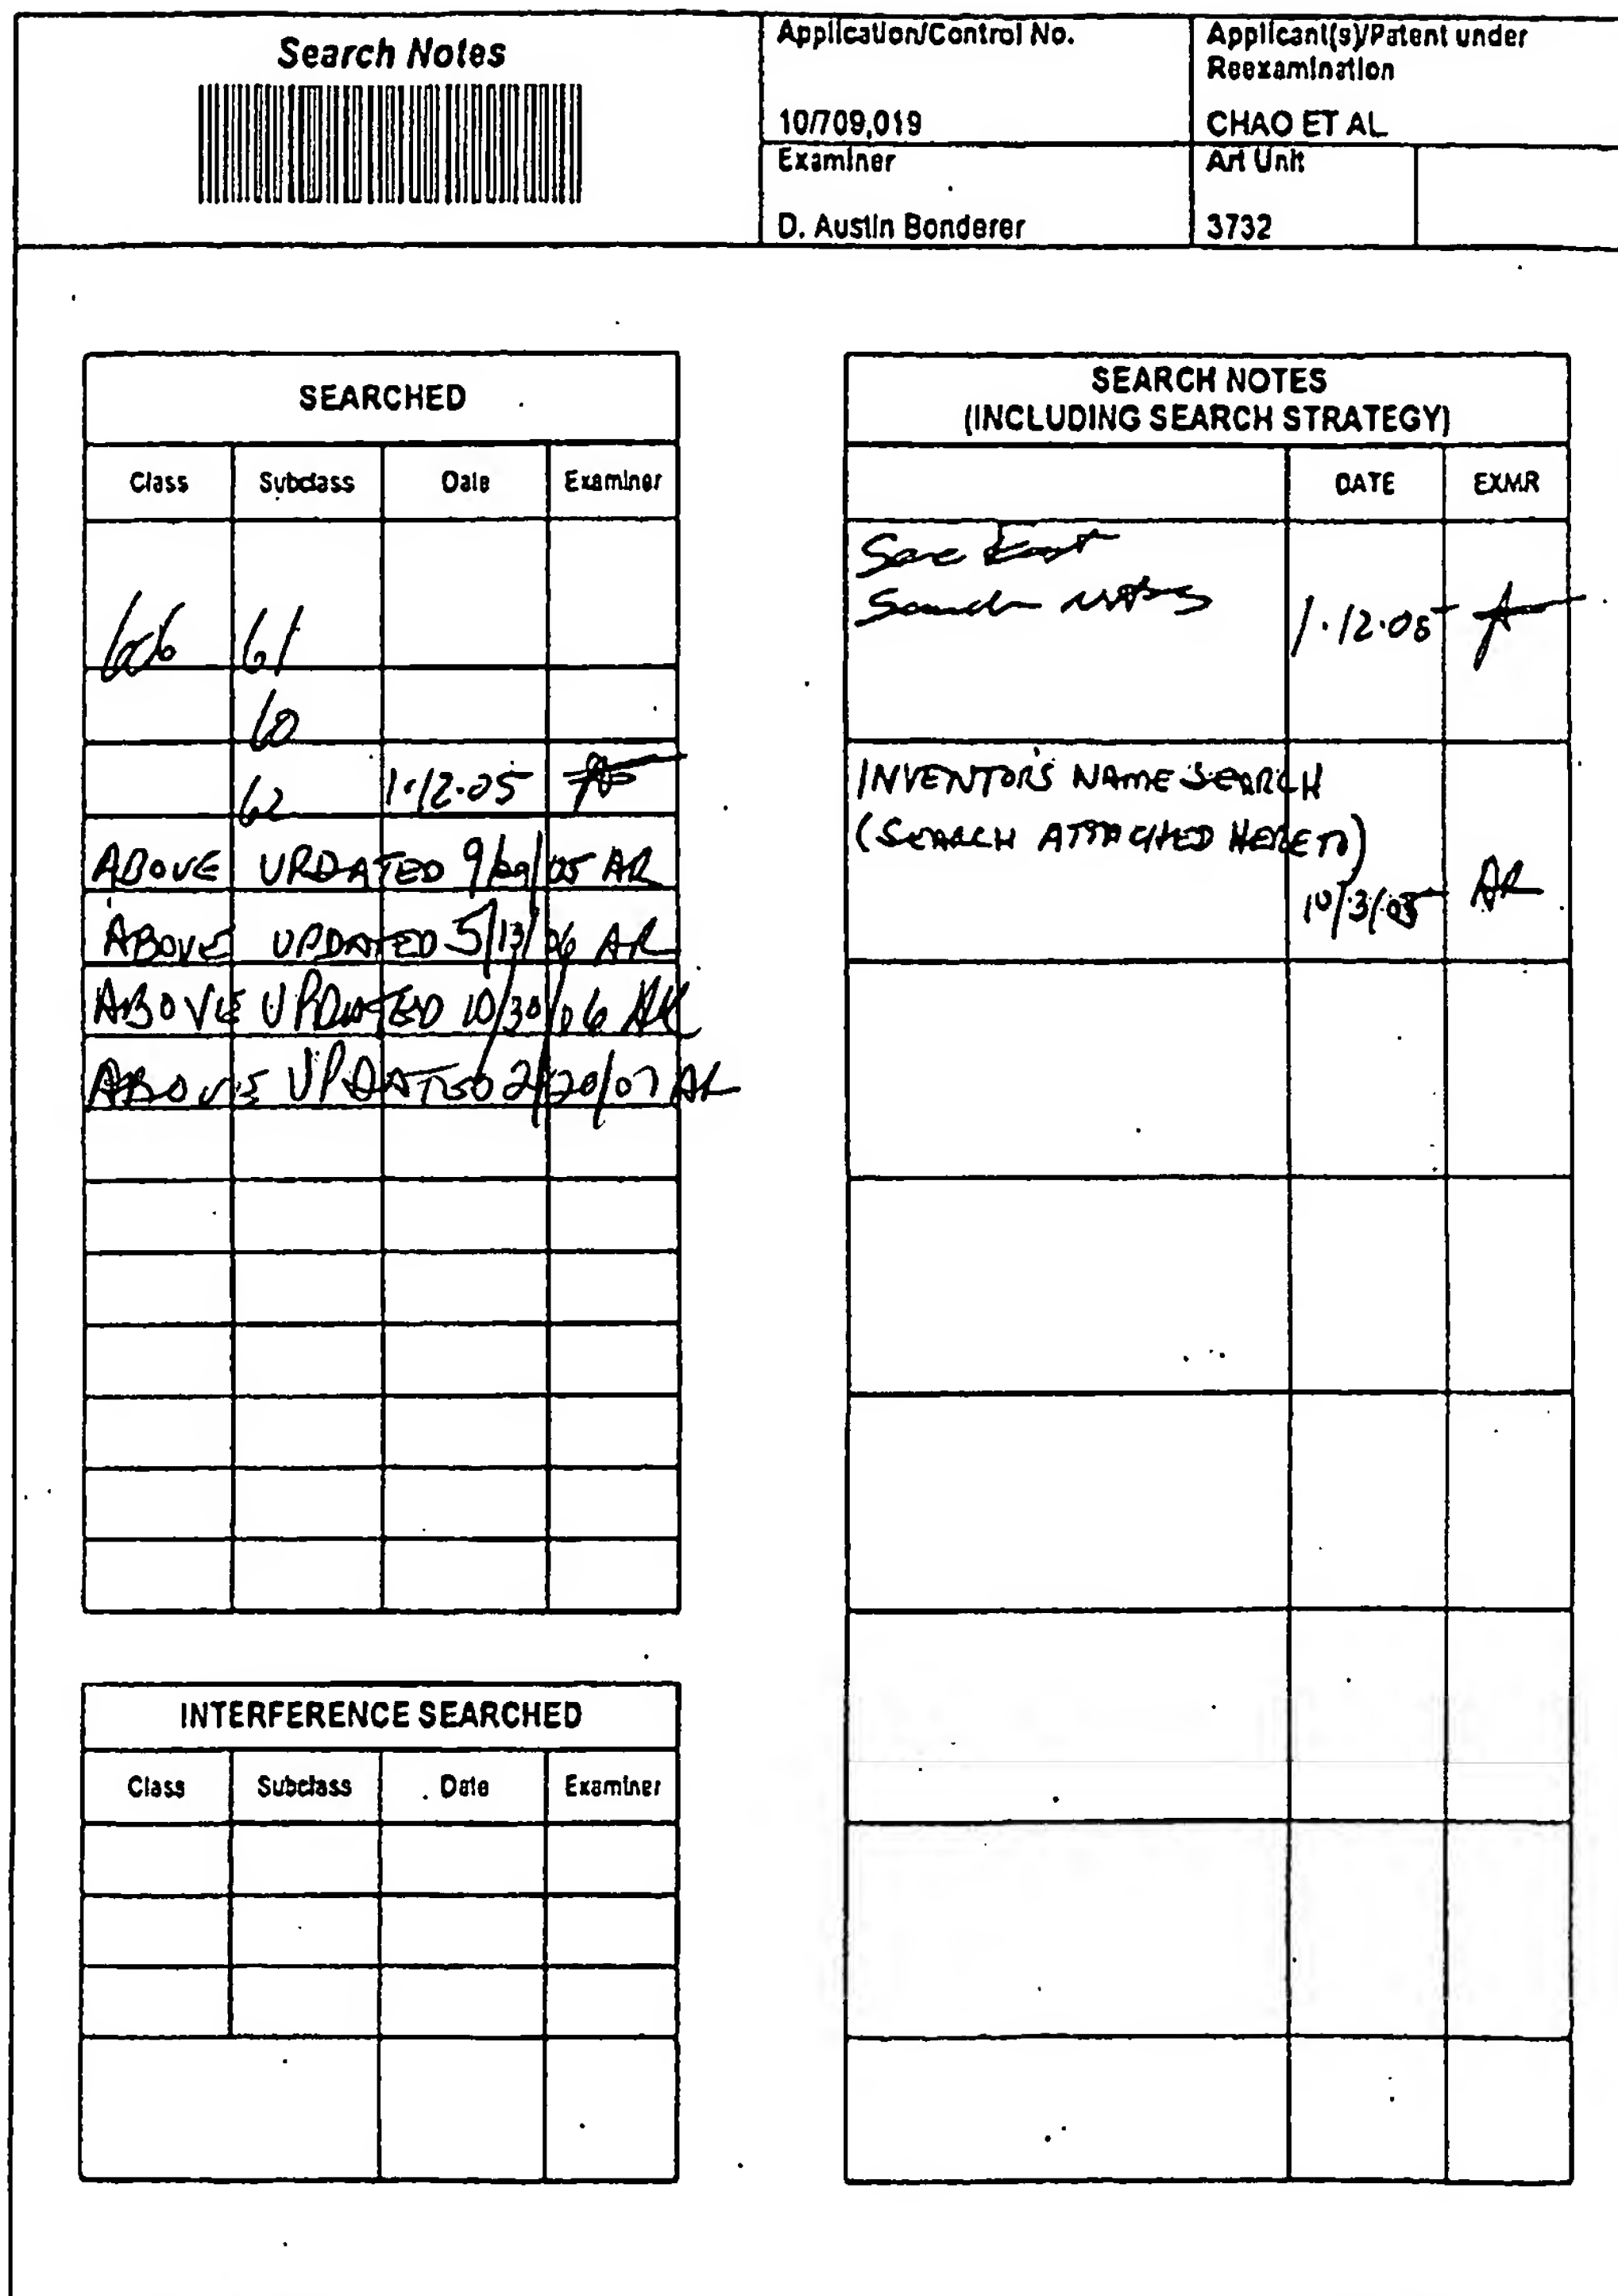 Search Notes
Application/Control No.
10/709,019
Applicant(s)/Patent under
Reexamination
CHAO ET AL.
Examiner
D. Austin Bonderer
Art Unit
3732
SEARCHED
Class Subclass Date Examiner
606 61
60
62 1.12.05
ABOVE UPDATED 9/29/05 AR
ABOVE UPDATED 5/13/06 AR
ABOVE UPDATED 10/30/06 AR
ABOVE UPDATED 2/20/07 AR
INTERFERENCE SEARCHED
Class Subclass Date Examiner
SEARCH NOTES
(INCLUDING SEARCH STRATEGY)
DATE EXMR
See East
Search notes 1.12.05
INVENTORS NAME SEARCH
(SEARCH ATTACHED HERETO)
10/3/05 AR